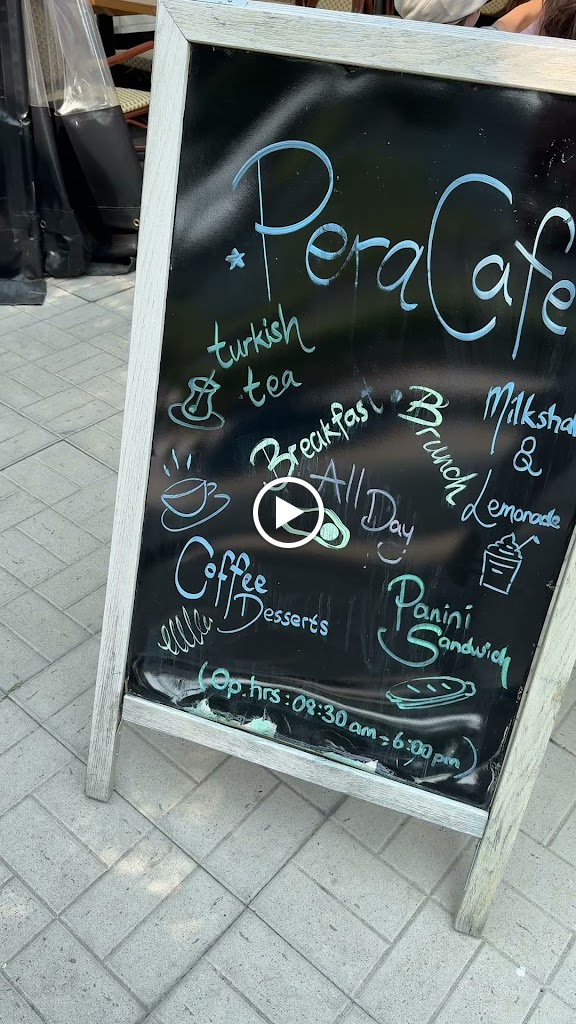 Pera Cafe
turkish
tea
Breakfast
Brunch
All Day
&
Lemonade
Coffee
Desserts
Panini
Sandwich
(Op.hrs: 08:30 am - 6:00pm)